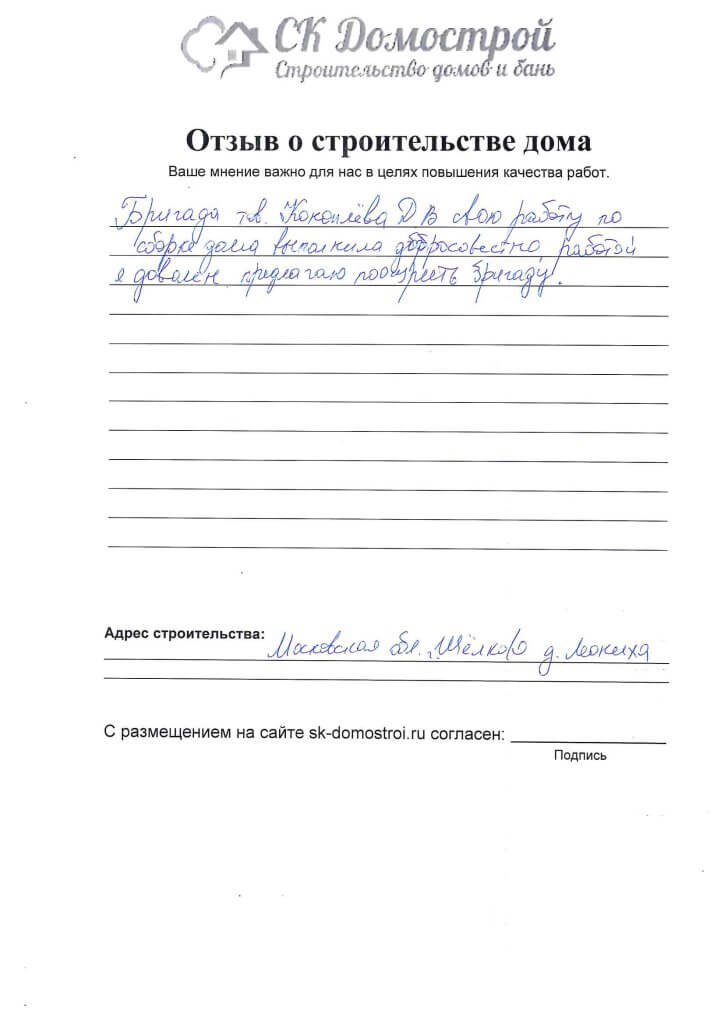 СК Домострой
Строительство домов и бань
Отзыв о строительстве дома
Ваше мнение важно для нас в целях повышения качества работ.
Бригада Д В свою работу по
сборке дома выполнила добросовестно работой
я доволен предлагаю поощрить бригаду.
Адрес строительства: Московская обл. Щёлково д. Леониха
С размещением на сайте sk-domostroi.ru согласен:
Подпись